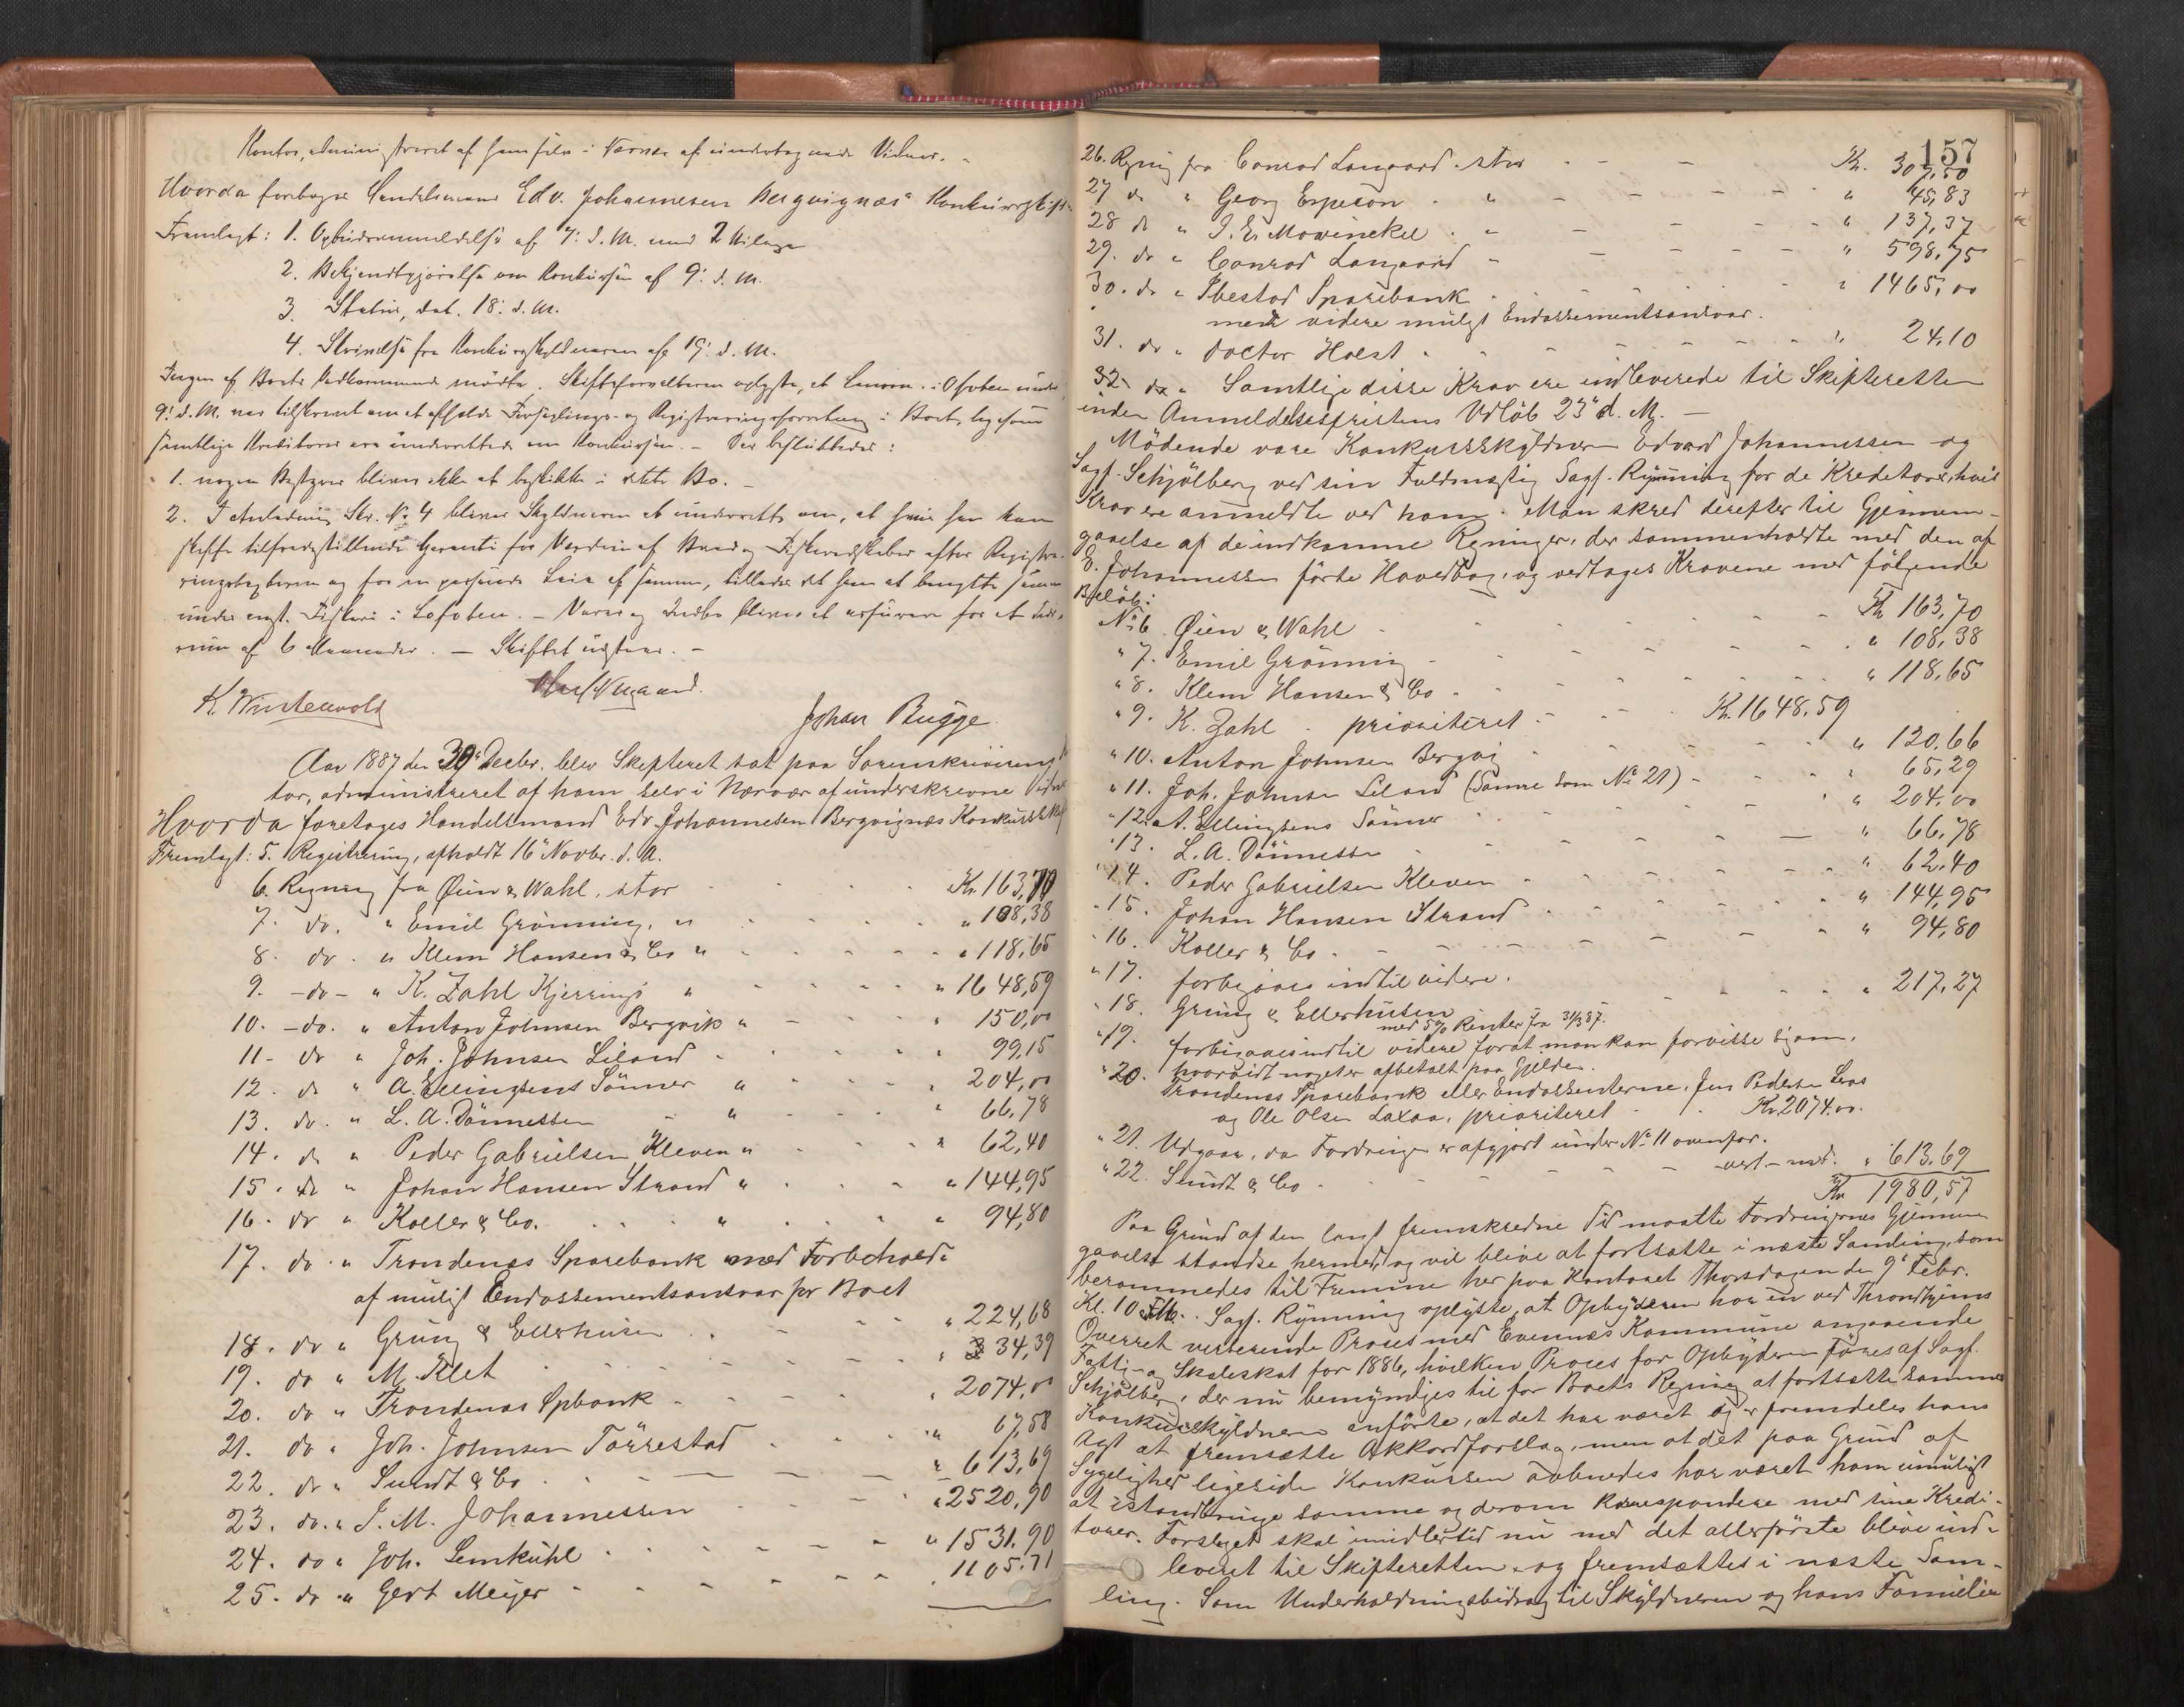 Kontor, administreret af ham selv i Nærvær af undertegnede Vidner. -
Hvorda foretoges Handelsmand Edv. Johannesen Bergvignæs' Konkursskifte.
Fremlagt: 1. Opbudsanmeldelse af 7. d. M. med 2 Bilage
2. Bekjendtgjørelse om Konkursen af 9. d. M.
3. Status, dat. 18. d. M.
4. Skrivelse fra Konkursskyldneren af 19. d. M.
Ingen af Boets Vedkommende mødte. Skifteforvalteren oplyste, at Lensm. i Ofoten under
9. d. M. var tilskrevet om at afholde Forseglings- og Registreringsforretning i Boet, ligesom
samtlige Kreditorer ere underrettede om Konkursen. - Der besluttedes:
1. nogen Bestyrer bliver ikke at beskikke i dette Bo. -
2. I Anledning Skr. No 4 bliver Skyldneren at underrette om, at hvis han kan
skaffe tilfredsstillende Garanti for Værdien af Baad og Fiskeredskaber efter Registre-
ringstaxten og for en passende Leie af samme, tillades det ham at benytte samme
under Fiskeri i Lofoten. - Varer og Indbo bliver at assurere for et Tids-
rum af 6 Maaneder. - Skiftet udstaar. -
K. Wintervold
Johan Bugge.
Aar 1887 den 30' Decbr. blev Skifteret sat paa Sorenskriverens
tor, administreret af ham selv i Nærvær af underskrevne Vidner
Hvorda foretoges Handelsmand Edv. Johannesen Bergvignæs Konkursskif
Fremlagt: 5. Registrering, afholdt 16' Novbr. d. A.
6. Regning fra Øien & Wahl, stor Kr. 163,70
7. do. " Emil Grønning, " " 108,38
8. do. " Klem Hansen & Co " " 118,65
9. - do - " K. Zahl Kjerringø " " 1648,59
10. - do. " Anton Johnsen Bergvik " " 150,00
11 - do " Joh. Johnsen Liland " 99,15
12. do " A. Ellingsens Sønner " " 204,00
13. do. " L. A. Dønnessen - " " 66,78
14. do " Peder Gabrielsen Kleven " " 62,40
15. do " Johan Hansen Strand " " 144,95
16. do " Koller & Co. " " 94,80
17. do. " Trondenæs Sparebank med Forbehold
af muligt Endossementsansvar pr Boet
18. do " Grung & Ellerhusen " 224,68
19. do " M. Klet " 334,39
20. do " Trondenæs Spbank " 2074,00
21. do " Joh. Johnsen Tørrestad " 67,58
22. do " Sundt & Co " 613,69
23. do. " I. M. Johannessen " 2520,90
24. do " Joh. Lemkuhl " 1531,90
25. do " Gert Meyer " 1105,71
157
26. Regning fra Conrad Langaard stor Kr. 307,50
27 do " Georg Espeson " " 45,83
28 do " I. E. Mowinckel " " 137,37
29. do " Conrad Langaard " " 598,75
30. do " Ibestad Sparebank " 1465,00
med videre muligt Endossementsansvar.
31. do " Doctor Holst " 24,10
32. do " Samtlige disse Krav ere indleverede til Skifteretten
inden Anmeldelsesfristens Udløb 23' d. M. -
Mødende vare Konkursskyldneren Edvard Johannessen og
Sagf. Schjølberg ved sin Fuldmægtig Sagf. Rynning for de Kreditorer, hvis
Krav ere anmeldte ved ham. Man skred derefter til Gjennem-
gaaelse af de indkomne Regninger, der sammenholdtes med den af
E. Johannessen førte Hovedbog, og vedtoges Kravene med følgende
Beløb:
No 6 Øien & Wahl Kr 163,70
" 7. Emil Grønning " 108,38
" 8. Klem Hansen & Co " 118,65
" 9. K. Zahl prioriteret Kr. 1648,59
" 10. Anton Johnsen Bergvig " 120,66
" 11. Joh. Johnsen Liland (Samme som No 21) " 65,29
" 12. A. Ellingsens Sønner " 204,00
" 13. L. A. Dønnessen " 66,78
" 14. Peder Gabrielsen Kleven " 62,40
" 15. Johan Hansen Strand " 144,95
" 16. Koller & Co. " 94,80
" 17. forbigaaes indtil videre.
" 18. Grung & Ellerhusen " 217,27
med 5% Renter fra 31/3 87.
" 19. forbigaaes indtil videre forat man kan forvisse sig om,
hvorvidt noget er afbetalt paa Gjelden.
" 20. Trondenæs Sparebank eller Endossenterne, Jens Pedersen Leros
og Ole Olsen Laxaa, prioriteret Kr. 2074.00.
" 21. Udgaar, da Fordringen er afgjort under No 11 ovenfor.
" 22. Sundt & Co " 613.69
Kr 1980,57
Paa Grund af den langt fremskredne Tid maatte Fordringernes Gjennem
gaaelse standse hermed og vil blive at fortsætte i næste Samling, som
berammedes til Fremme her paa Kontoret Thorsdagen den 9' Febr.
Kl. 10 Fm. Sagf. Rynning oplyste, at Opbyderen har en ved Throndhjems
Overret verserende Proces med Evennæs Kommune angaaende
Fattig- og Skoleskat for 1886, hvilken Proces for Opbyderen føres af Sagf.
Schjølberg, der nu bemyndiges til for Boets Regning at fortsætte samme
Konkursskyldneren anførte, at det har været og er fremdeles hans
Agt at fremsætte Akkordforslag, men at det paa Grund af
Sygelighed ligesiden Konkursen aabnedes har været ham umuligt
at istandbringe samme og derom korrespondere med sine Kredi-
torer. Forslaget skal imidlertid nu med det allerførste blive ind-
leveret til Skifteretten og fremsættes i næste Sam-
ling. Som Underholdningsbidrag til Skyldneren og hans Familie